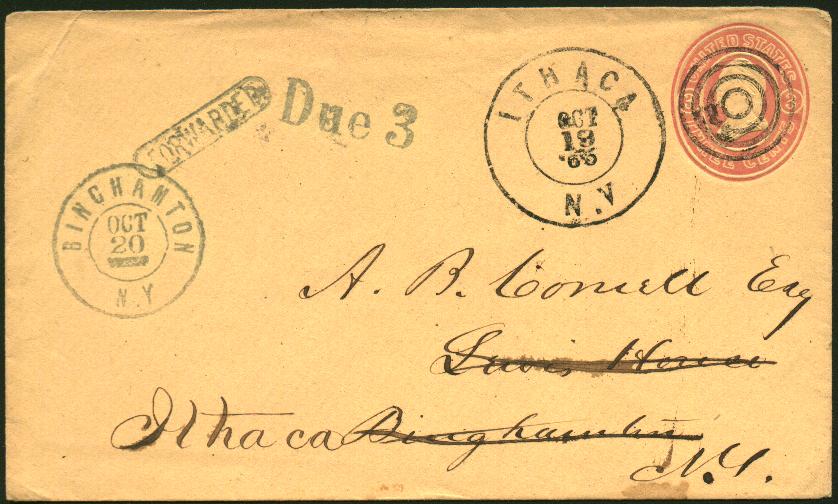 UNITED STATES
3 3
THREE CENTS
FORWARDED
Due 3
ITHACA
OCT
19
'65
N.Y
BINGHAMTON
OCT
20
N.Y
A. B. Cornell Esq
Lewis House
Ithaca Binghamton
N.Y.